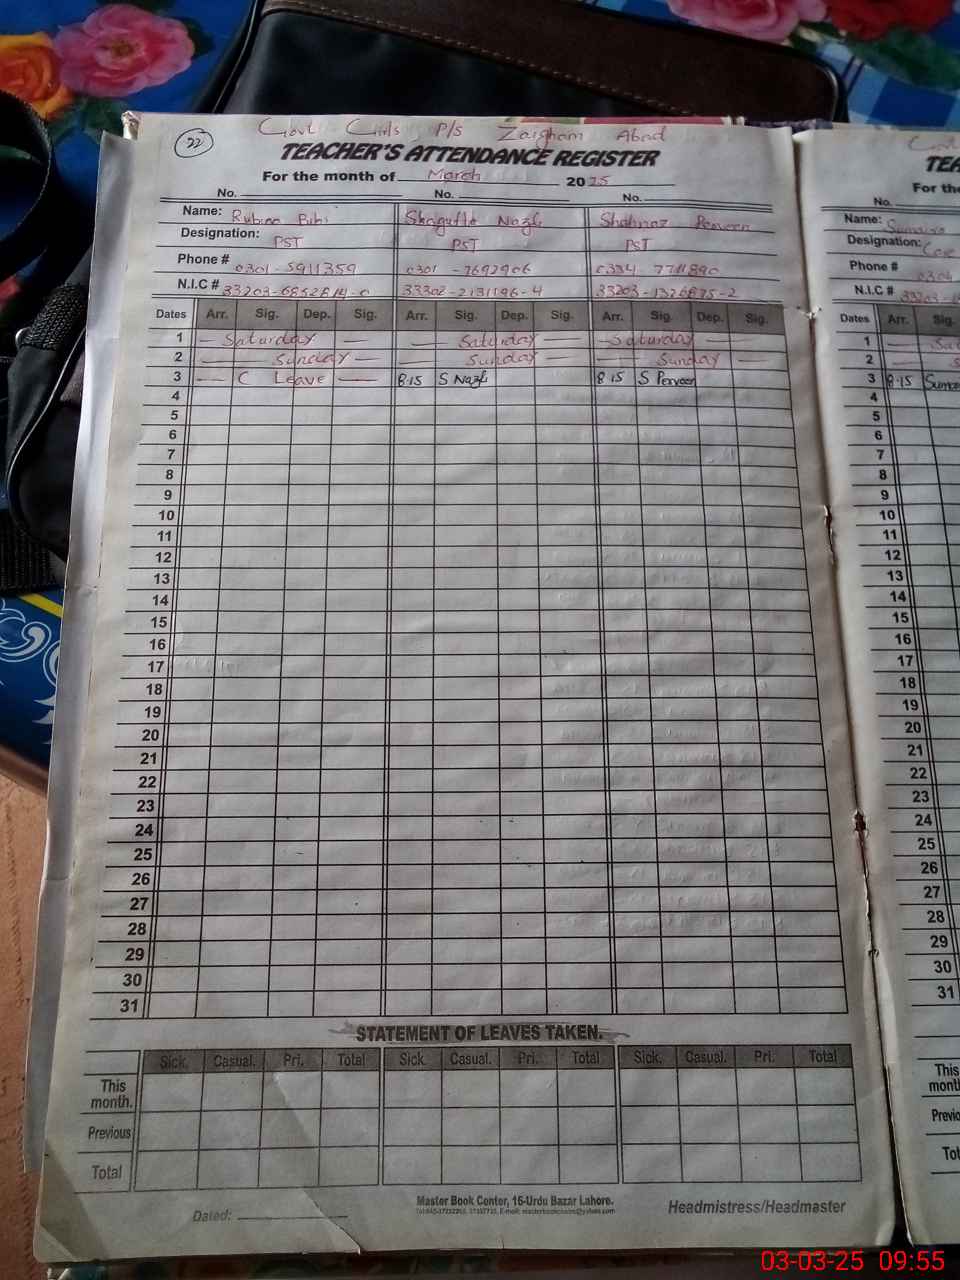 22
Govt Girls P/S Zaigham Abad
TEACHER'S ATTENDANCE REGISTER
For the month of March 2025
No. No. No.
Name: Rubina Bibi Shagufta Nazli Shahnaz Perveen
Designation: PST PST PST
Phone # 0301-5911359 0301-7692906 0334-7711890
N.I.C # 33203-6852814-0 33302-2131196-4 33203-1326875-2
Dates Arr. Sig. Dep. Sig. Arr. Sig. Dep. Sig. Arr. Sig. Dep. Sig.
1 — Saturday — — Saturday — — Saturday —
2 — Sunday — — Sunday — — Sunday —
3 — C Leave — 8.15 S Nazli 8.15 S Perveen
4
5
6
7
8
9
10
11
12
13
14
15
16
17
18
19
20
21
22
23
24
25
26
27
28
29
30
31
STATEMENT OF LEAVES TAKEN.
Sick. Casual. Pri. Total Sick. Casual. Pri. Total Sick. Casual. Pri. Total
This month.
Previous
Total
Master Book Center, 16-Urdu Bazar Lahore.
Dated: Headmistress/Headmaster
TEA
For the
No.
Name: Sumaira
Designation:
Phone # 0304
N.I.C #
Dates Arr. Sig.
1
2
3 8.15
4
5
6
7
8
9
10
11
12
13
14
15
16
17
18
19
20
21
22
23
24
25
26
27
28
29
30
31
This
month
Previo
Tot
03-03-25 09:55